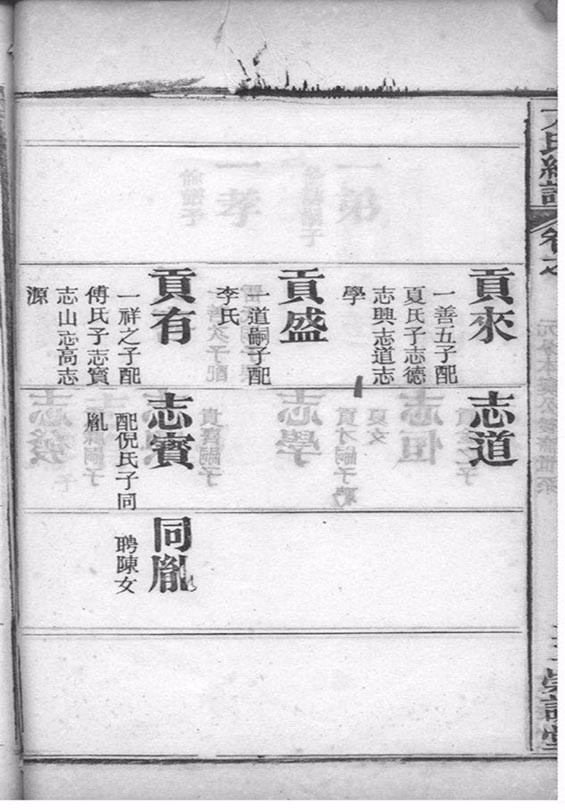 氏總譜
貢來
一善五子配
夏氏子志德
志興志道志
學
志道
貢盛
一道嗣子配
李氏
貢有
一祥之子配
傅氏子志賓
志山志高志
源
志賓
配倪氏子同
胤
同胤
聘陳女